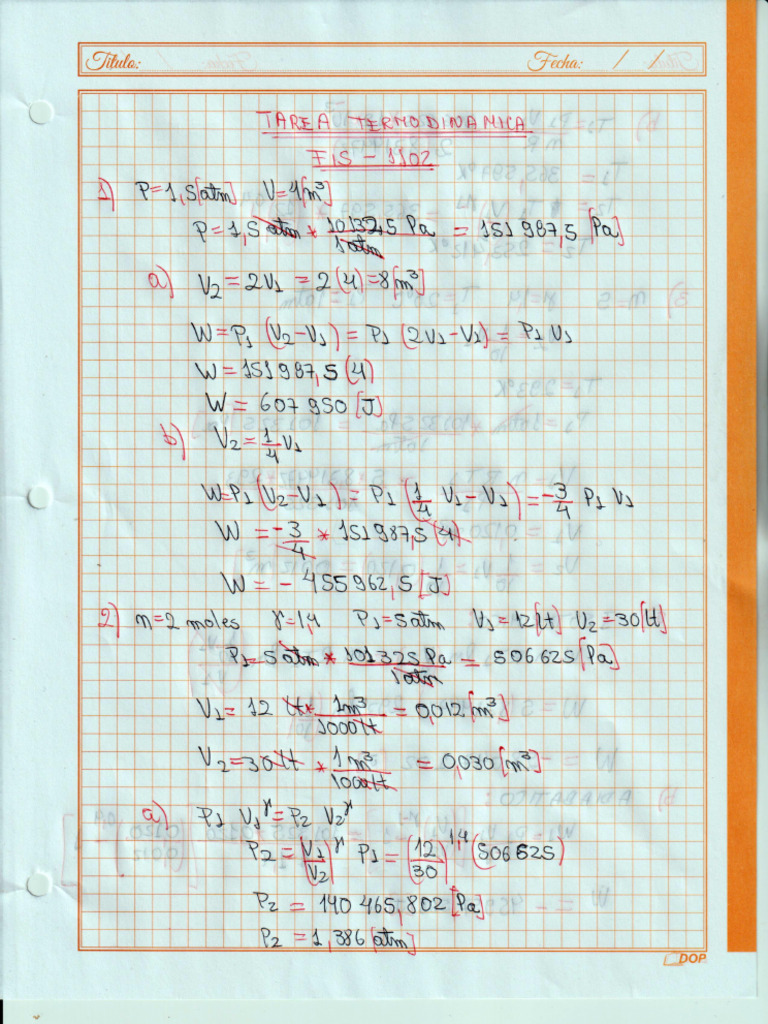 Título: Fecha: / /
TAREA TERMODINAMICA
FIS - 1102
1) P=1,5[atm] V=4[m³]
P=1,5 atm * 101325 Pa / 1atm = 151987,5 [Pa]
a) V2 = 2V1 = 2(4) = 8[m³]
W = P1 (V2-V1) = P1 (2V1-V1) = P1 V1
W = 151987,5 (4)
W = 607950 [J]
b) V2 = 1/4 V1
W=P1 (V2-V1) = P1 (1/4 V1-V1) = -3/4 P1 V1
W = -3/4 * 151987,5 (4)
W = - 455962,5 [J]
2) n=2 moles γ=1,4 P1=5atm V1=12[lt] V2=30[lt]
P1=5 atm * 101325 Pa / 1atm = 506625 [Pa]
V1= 12 lt * 1m³ / 1000lt = 0,012 [m³]
V2=30 lt * 1m³ / 1000lt = 0,030 [m³]
a) P1 V1^γ = P2 V2^γ
P2 = (V1/V2)^γ P1 = (12/30)^1,4 (506625)
P2 = 140465,802 [Pa]
P2 = 1,386 [atm]
DOP